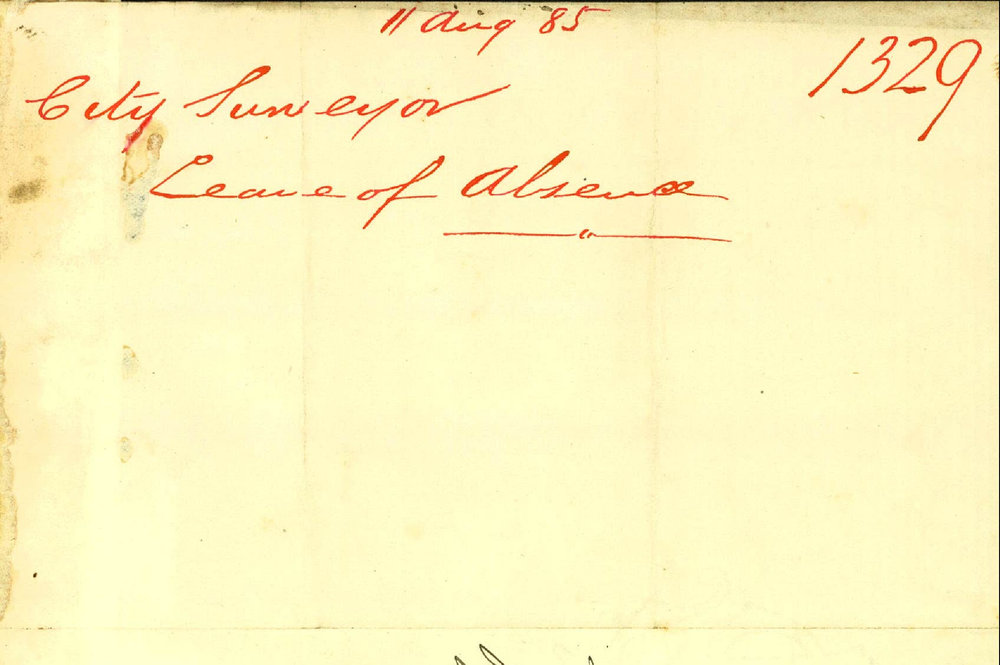 11 Aug 85
1329
City Surveyor
Leave of Absence